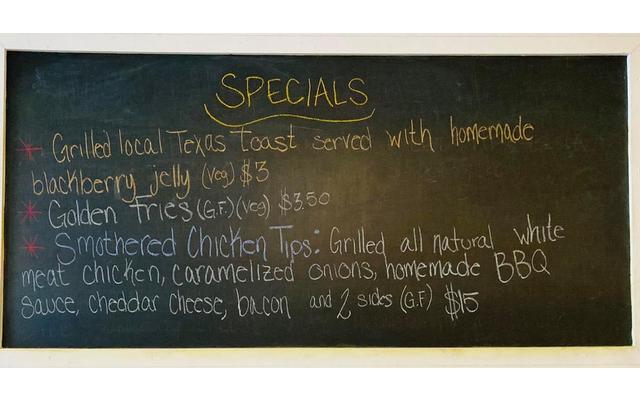 SPECIALS
* Grilled local Texas toast served with homemade
blackberry jelly (veg) $3
* Golden Fries (G.F.) (veg) $3.50
* Smothered Chicken Tips: Grilled all natural white
meat chicken, caramelized onions, homemade BBQ
sauce, cheddar cheese, bacon and 2 sides (G.F) $15